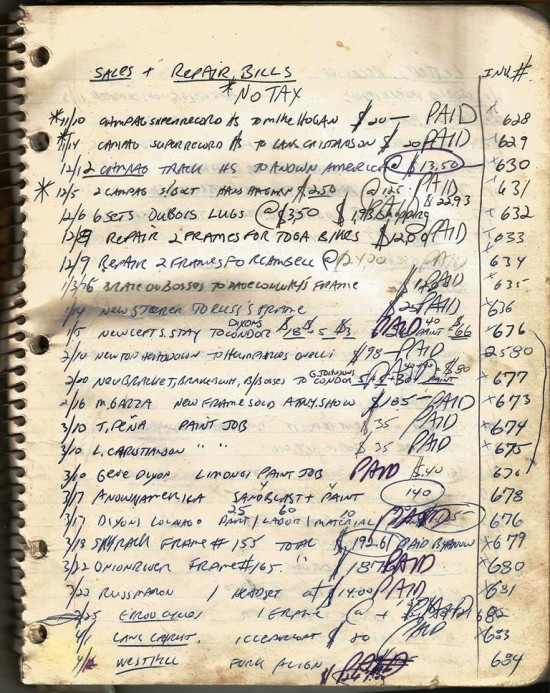 SALES + REPAIR BILLS INV.#
*NO TAX
*11/10 CAMPAG SUPER RECORD HS TO MIKE HOGAN $20— PAID 628
*11/14 CAMPAG SUPER RECORD HS TO LARS CHRISTIANSON $20 PAID 629
12/12 CAMPAG TRACK HS TO KNOWN AMERICA @ $13.50 630
*12/5 2 CAMPAG S/BOLT $2.50 @ 125 PAID 631
12/6 6 SETS DUBOIS LUGS @ $3.50 $1.93 Shipping PAID $22.93 632
12/8 REPAIR 2 FRAMES FOR TOGA BIKES $120.00 PAID 633
12/9 REPAIR 2 FRAMES FOR CAMBELL @ 634
1/3/76 BRAZE ON BOSSES TO FRAME PAID 635
1/4 NEW STEERER TO RUSS'S FRAME $25 PAID 636
1/5 NEW CERTS. STAY TO DIXONS CONDOR $18 + 5 $3 PAID PAINT 40 $66 676
2/10 NEW TOP HEAD DOWN TO HUMPHRIES $98— PAID 2580
2/20 NEW BRACKET, BRAKE BRIDGE, B/BOSSES TO G. DIXONS CONDOR PAINT $80 677
2/16 M. GARZA NEW FRAME SOLD AT N.Y. SHOW $185— PAID 673
3/10 T. PEÑA PAINT JOB $35 PAID 674
3/10 L. CHRISTIANSON " " $35 PAID 675
3/10 GENE DIXON LIMONGI PAINT JOB PAID $40 676
3/17 KNOWN AMERICA SANDBLAST + PAINT 140 678
3/17 DIXON COLNAGO PAINT 25 / LABOR 60 / MATERIAL 10 PAID 676
3/18 SKYRACK FRAME # 155 TOTAL $192.61 PAID 679
3/22 ONION RIVER FRAME # 165. " $187 PAID 680
3/22 RUSS 1 HEADSET at $14.00 PAID 681
3/25 1 FRAME @ PAID 682
4/1 LARS CHRIST. $20 PAID 683
WESTHILL FORK ALIGN 684